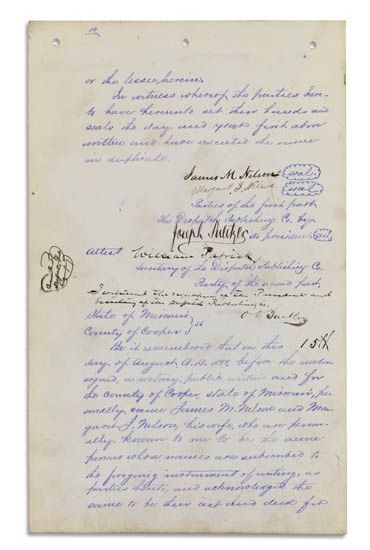 10
or the lessee, herein.
In witness whereof the parties here-
to have hereunto set their hands and
seals the day and year first above
written and have executed the same
in duplicate.
James M Nelson seal
Margaret J. Nelson seal
Parties of the first part
The Dispatch Publishing Co. by
Joseph Pulitzer its president seal
attest William
Secretary of the Dispatch Publishing Co.
Party of the second part,
I witnessed the signatures of the President and
Secretary of the Dispatch Publishing Co.
State of Missouri
County of Cooper ss
Be it remembered that on this 15th
day of August A.D. 1881, before the under
signed, a notary public within and for
the County of Cooper, state of Missouri, per
sonally came James M. Nelson and Mar
garet J. Nelson, his wife, who are person
ally known to me to be the same
persons whose names are subscribed to
the foregoing instrument of writing, as
parties thereto, and acknowledged the
same to be their act and deed for